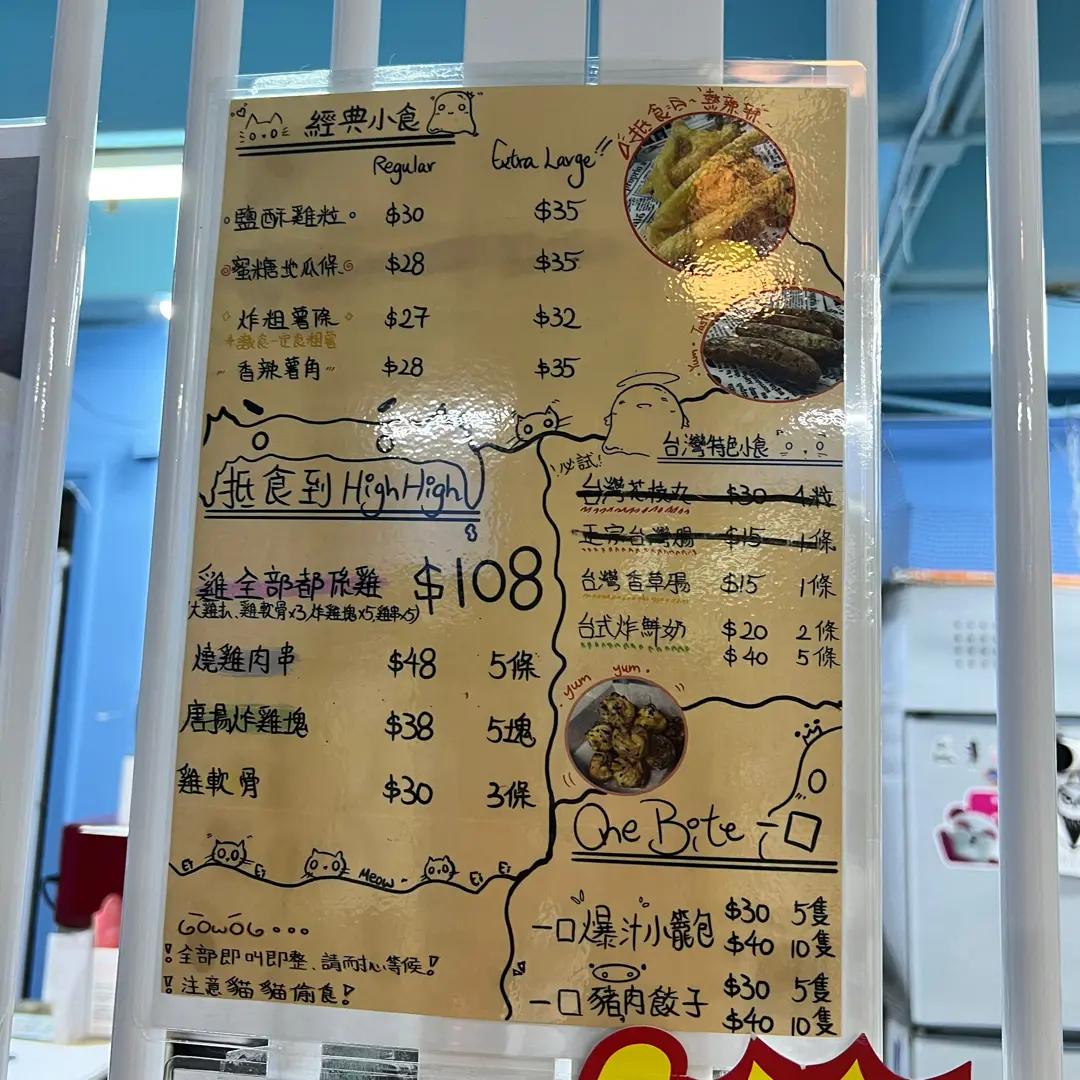 經典小食
Regular Extra Large
鹽酥雞粒 $30 $35
蜜糖地瓜條 $28 $35
炸粗薯條 $27 $32
香辣薯角 $28 $35
抵食滑~熱辣辣~
Yum
抵食到 High High
雞全部都係雞 $108
大雞扒、雞軟骨x3,炸雞塊x5,雞串x5)
燒雞肉串 $48 5條
唐揚炸雞塊 $38 5塊
雞軟骨 $30 3條
Ei Ei Meow~ Ei Ei
GOWOG...
!全部即叫即整、請耐心等候!
!注意貓貓偷食!
台灣特色小食
必試!
台灣花枝丸 $30 4粒
正宗台灣腸 $15 1條
台灣香草腸 $15 1條
台式炸鮮奶 $20 2條
$40 5條
yum yum.
One Bite 一口
一口爆汁小籠包 $30 5隻
$40 10隻
一口豬肉餃子 $30 5隻
$40 10隻